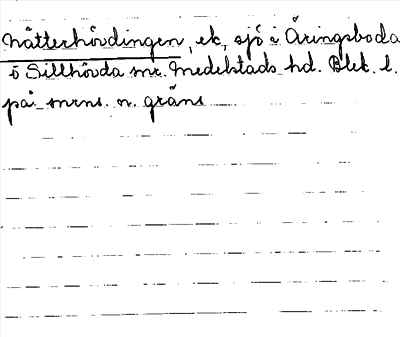 Nätterhövdingen, ek, sjö i Äringsboda
i Sillhövda sn. Medelstads hd. Blek. l.
på snens. n. gräns